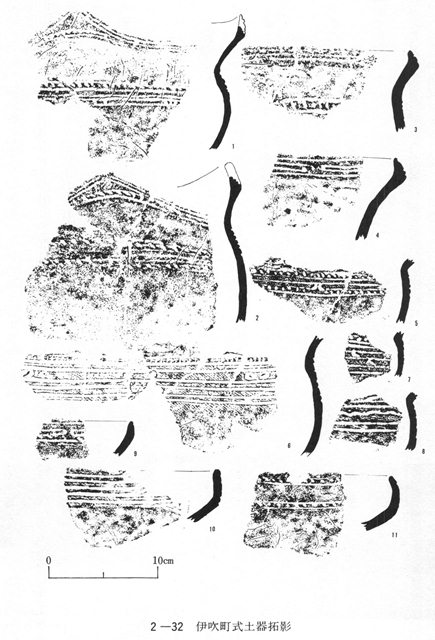 1
3
4
2
5
6
7
8
9
10
11
0 10cm
2—32 伊吹町式土器拓影